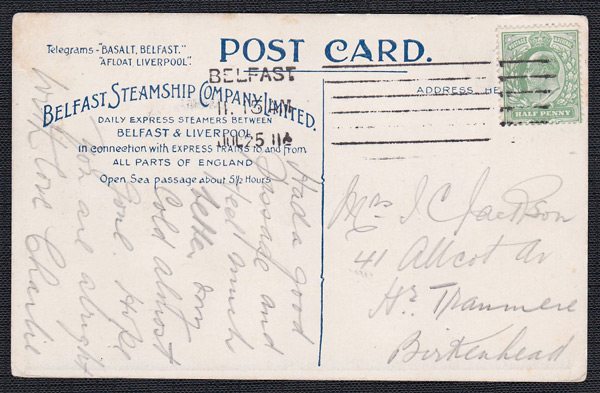 Telegrams - "BASALT, BELFAST."
"AFLOAT LIVERPOOL".
POST CARD.
BELFAST STEAMSHIP COMPANY LIMITED.
DAILY EXPRESS STEAMERS BETWEEN
BELFAST & LIVERPOOL
in connection with EXPRESS TRAINS to and from
ALL PARTS OF ENGLAND
Open Sea passage about 5½ Hours
BELFAST
11.15 AM
JUL 25 11
ADDRESS HE
HALF PENNY
Had a good
passage and
feel much
better. Our
Cold almost
gone. Hope
You are alright
With love Charlie
Mrs J C Jackson
41 Allcot Av
Hr. Tranmere
Birkenhead